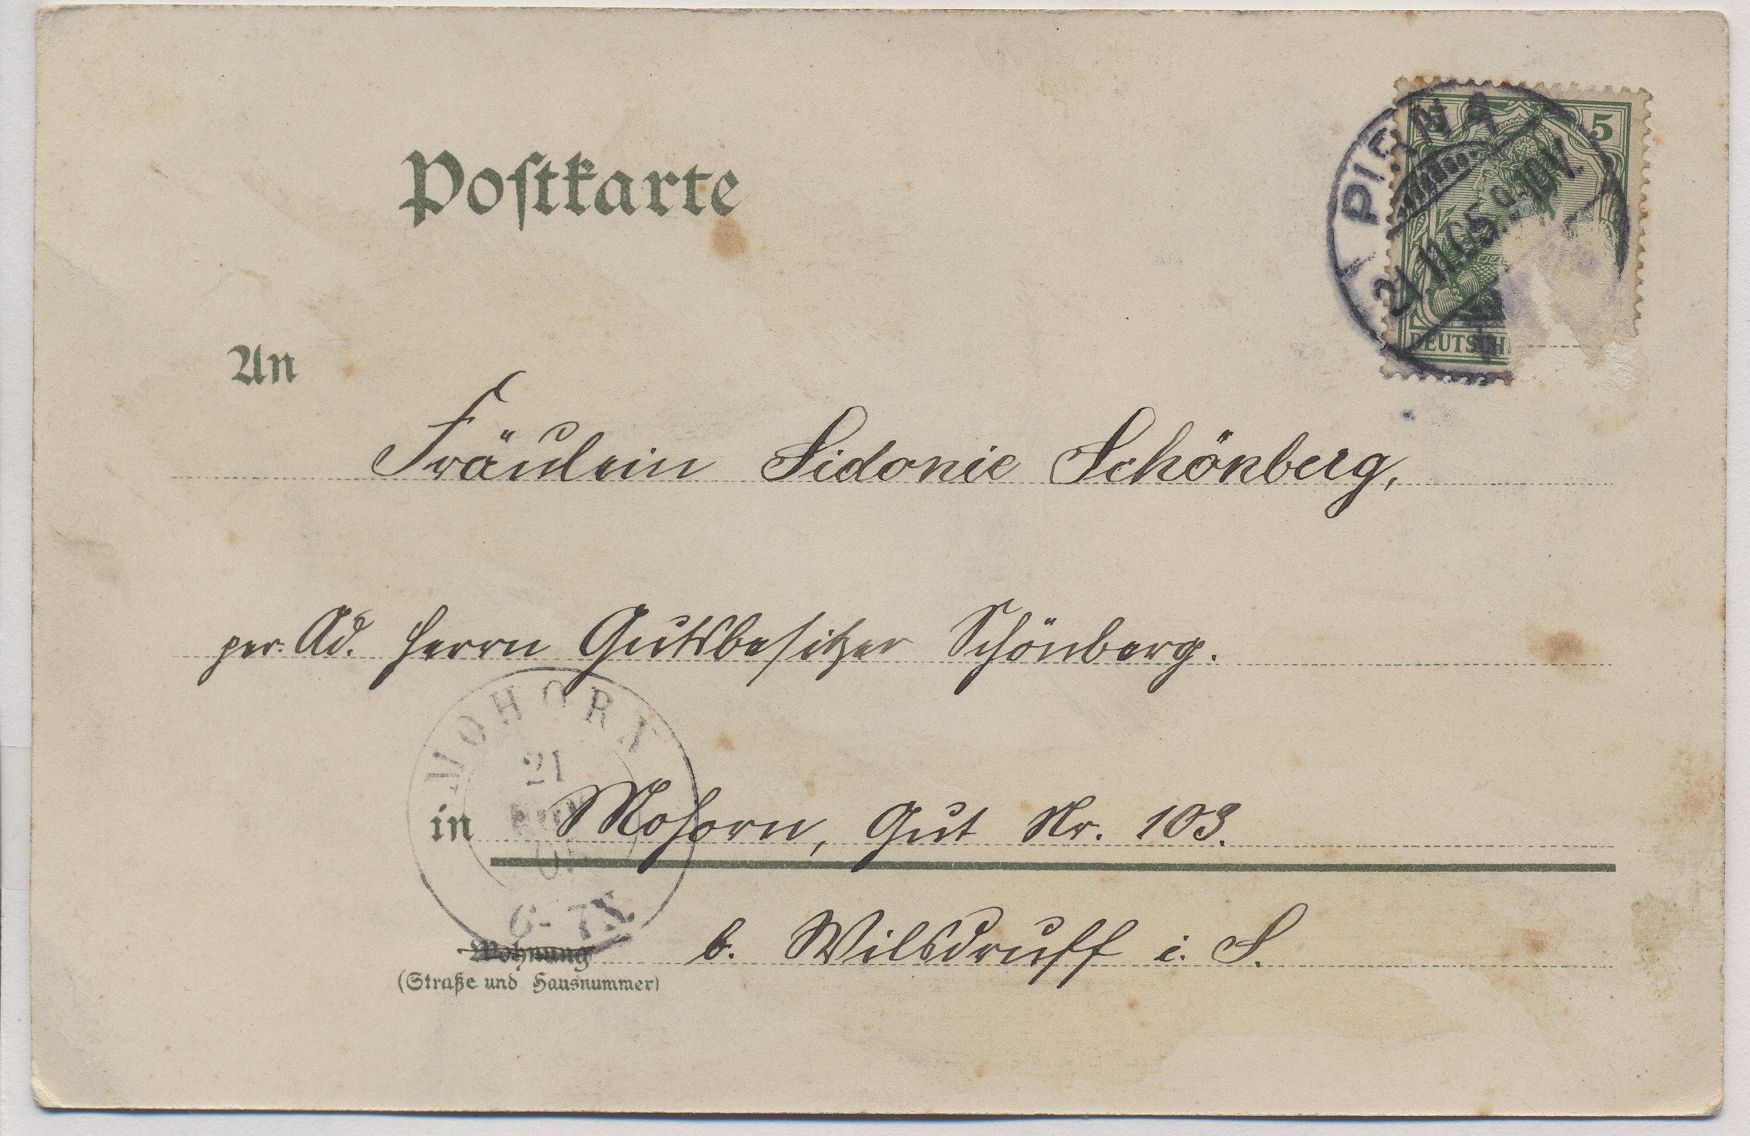 Postkarte
5
PIRNA
21.11.05.9-10V.
DEUTSCH
An
Fräulein Sidonie Schönberg,
per. Ad. Herrn Gutsbesitzer Schönberg.
MOHORN
21
6-7N.
in Mohorn, Gut Nr. 103.
Wohnung
b. Wilsdruff i. S.
(Straße und Hausnummer)